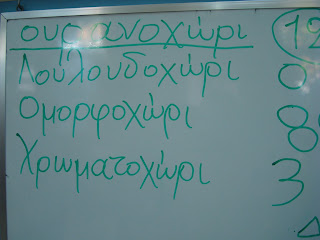 ουρανοχώρι 12
Λούλουδοχώρι 0
Ομορφοχώρι 8
Χρωματοχώρι 3